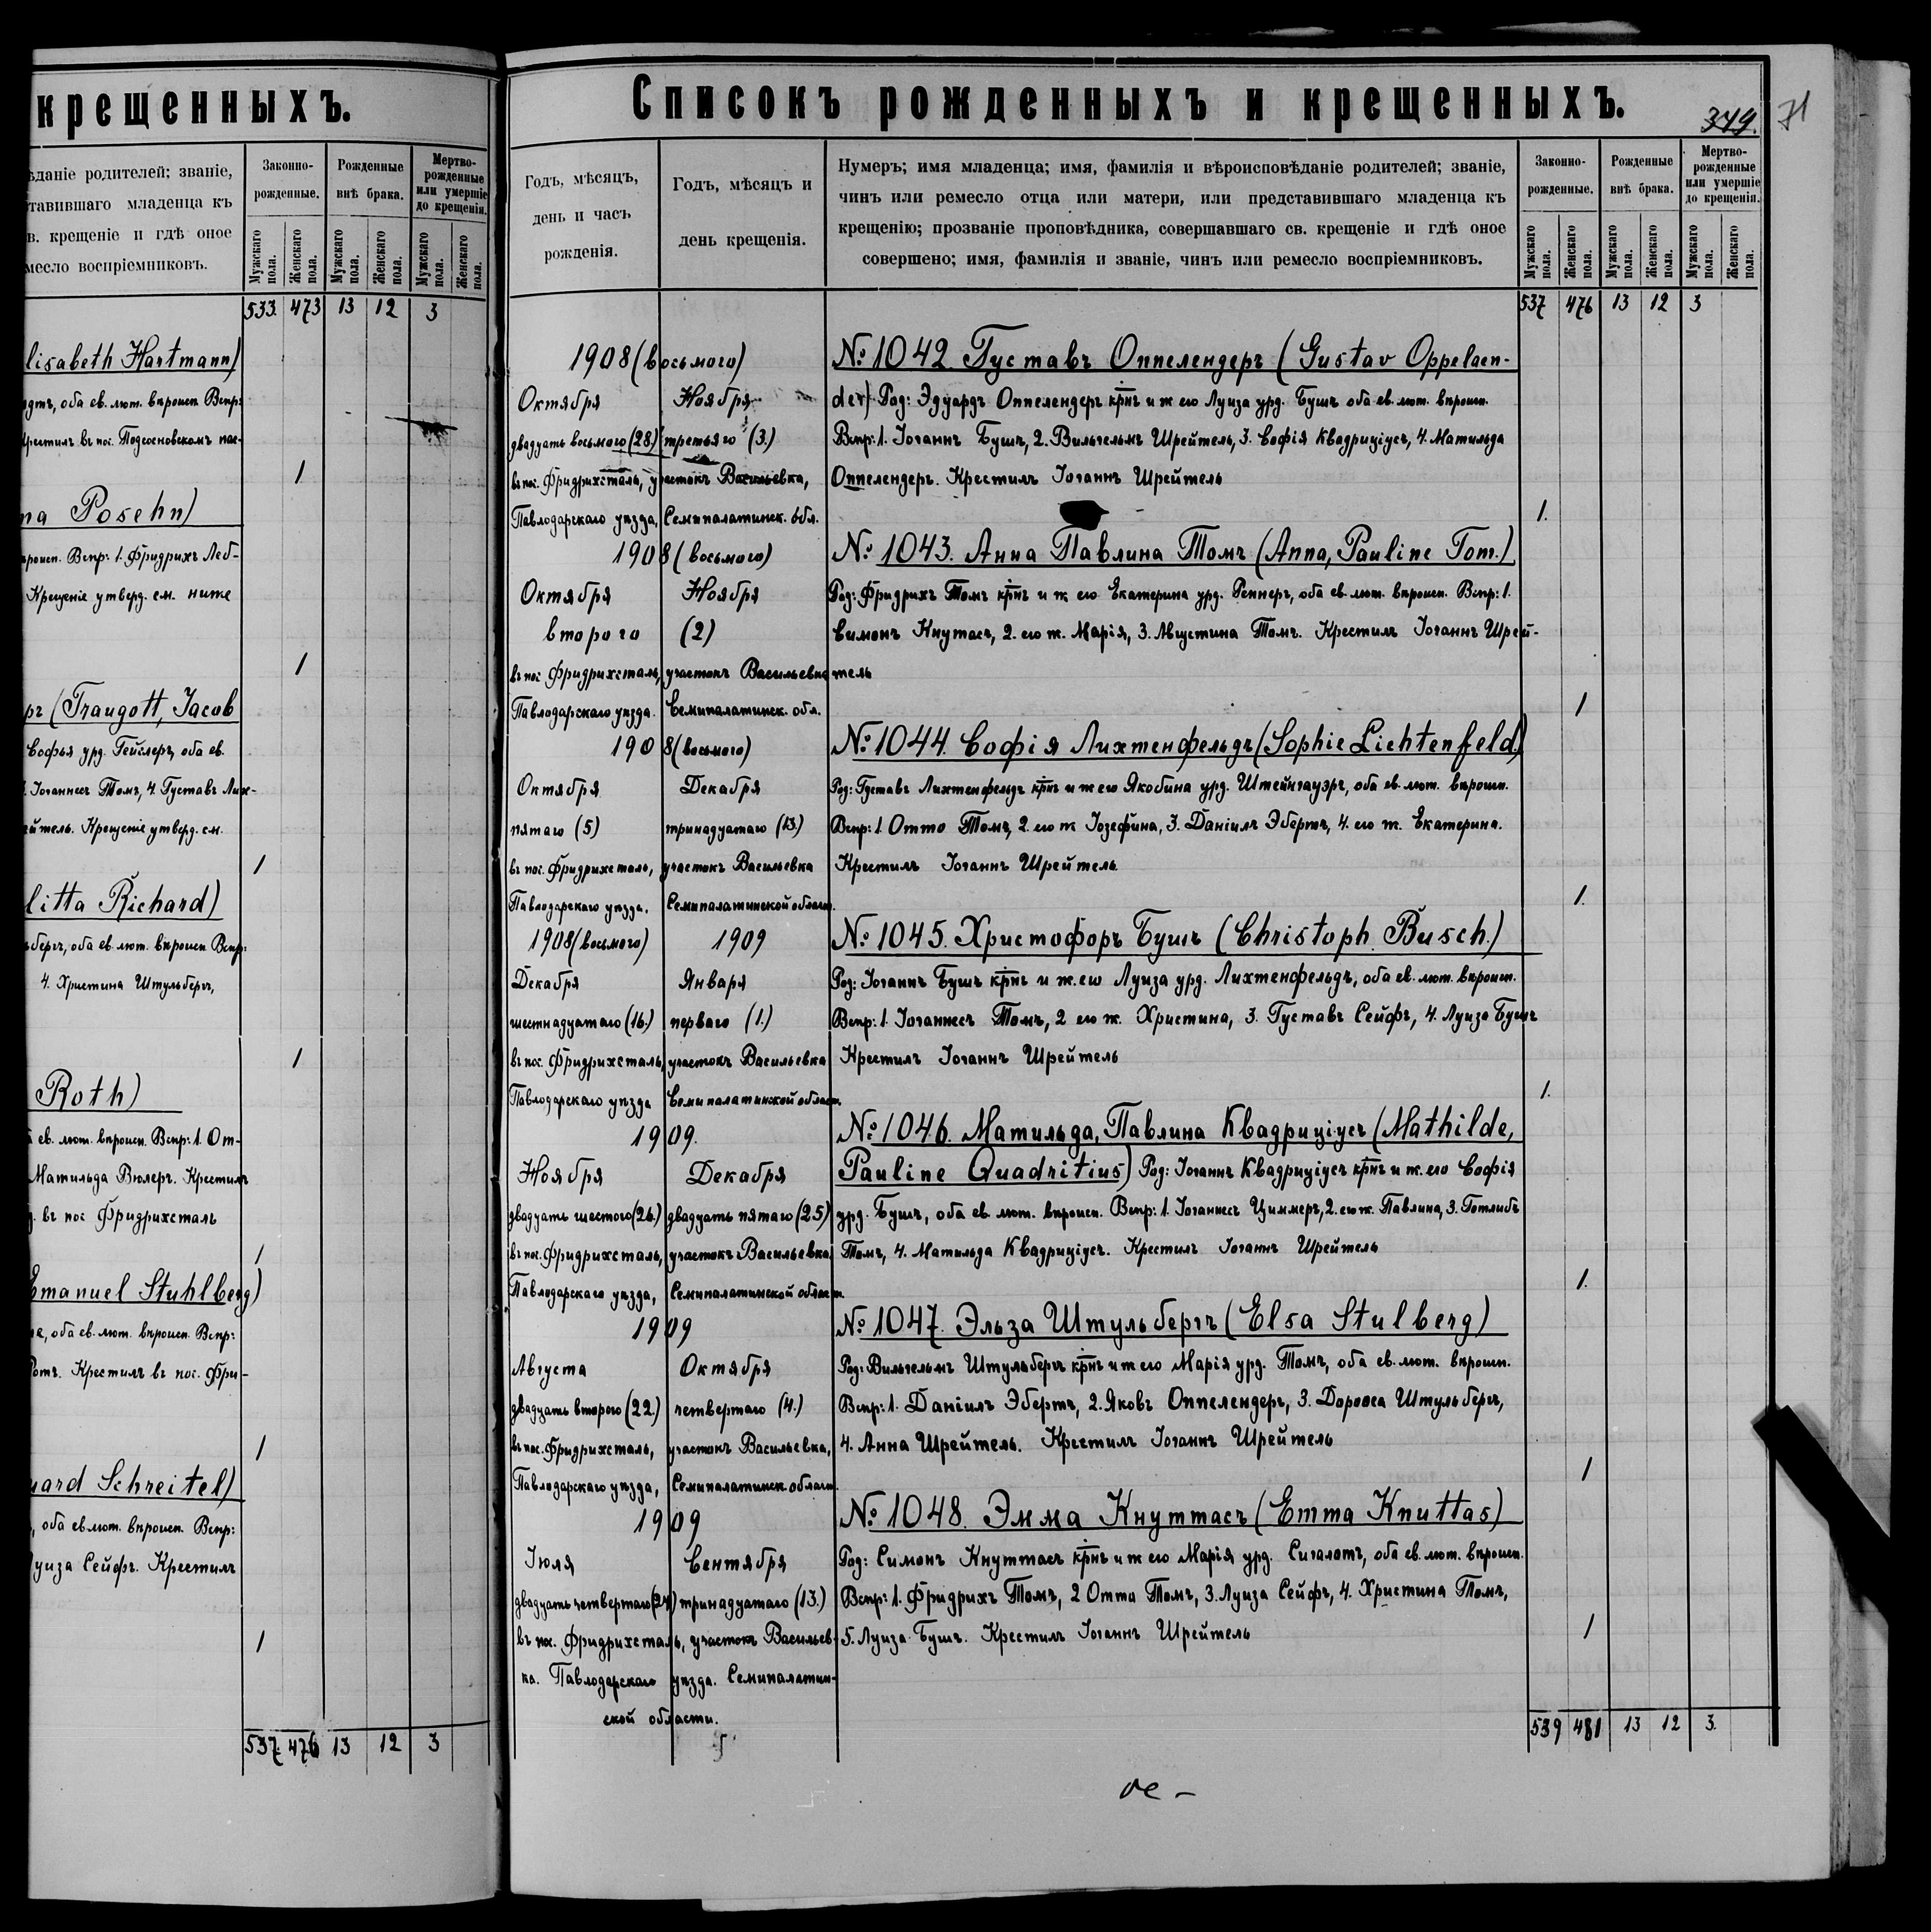 крещенныхъ.
ѣданіе родителей; званіе,
тавившаго младенца къ
в. крещеніе и гдѣ оное
месло воспріемниковъ.
Законно-
рожденные.
Рожденные
внѣ брака.
Мертво-
рожденные
или умершіе
до крещенія.
Мужскаго пола.
Женскаго пола.
Мужскаго пола.
Женскаго пола.
Мужскаго пола.
Женскаго пола.
533. 473 13 12 3
lisabeth Hartmann)
оба ев. лют. вѣроисп. Вспр:
Крестилъ въ пос. Подсосновскомъ
1
na Posehn)
вѣроисп. Вспр: 1. Фридрихъ Леб-
Крещеніе утверд. см. ниже
1
ръ (Traugott, Jacob
Софья урд. Гейслеръ, оба ев.
Іоганнесъ Томъ, 4. Густавъ Лих-
ейтель. Крещеніе утверд. см.
1
litta Richard)
бергъ, оба ев. лют. вѣроисп. Вспр:
4. Христина Штульбергъ,
1
Roth)
ев. лют. вѣроисп. Вспр: 1. От-
Матильда Вюлеръ. Крестилъ
въ пос. Фридрихсталъ
1
Emanuel Stuhlberg)
оба ев. лют. вѣроисп. Вспр:
Ротъ. Крестилъ въ пос. Фри-
1
uard Schreitel)
, оба ев. лют. вѣроисп. Вспр:
Луиза Сейфъ. Крестилъ
1
537. 476 13 12 3
Списокъ рожденныхъ и крещенныхъ.
349.
71
Годъ, мѣсяцъ,
день и часъ
рожденія.
Годъ, мѣсяцъ и
день крещенія.
Нумеръ; имя младенца; имя, фамилія и вѣроисповѣданіе родителей; званіе,
чинъ или ремесло отца или матери, или представившаго младенца къ
крещенію; прозваніе проповѣдника, совершавшаго св. крещеніе и гдѣ оное
совершено; имя, фамилія и званіе, чинъ или ремесло воспріемниковъ.
Законно-
рожденные.
Рожденные
внѣ брака.
Мертво-
рожденные
или умершіе
до крещенія.
Мужскаго пола.
Женскаго пола.
Мужскаго пола.
Женскаго пола.
Мужскаго пола.
Женскаго пола.
537 476 13 12 3
1908 (восьмого) № 1042 Густавъ Оппелендеръ (Gustav Oppelaen-
Октября Ноября der) Род: Эдуардъ Оппелендеръ крнъ и ж его Луиза урд. Бушъ оба ев. лют. вѣроисп.
двадцать восьмого (28) третьяго (3.) Вспр: 1. Іоганнъ Бушъ, 2. Вильгельмъ Шрейтель, 3. Софія Квадриціусъ, 4. Матильда
въ пос. Фридрихсталь, участокъ Васильевка, Оппелендеръ. Крестилъ Іоганнъ Шрейтель
Павлодарскаго уѣзда, Семипалатинск. обл. 1.
1908 (восьмого) № 1043. Анна Павлина Томъ (Anna, Pauline Tom.)
Октября Ноября Род: Фридрихъ Томъ крнъ и ж его Екатерина урд. Реннеръ, оба ев. лют. вѣроисп. Вспр: 1.
второго (2) Симонъ Кнутасъ, 2. его ж. Марія, 3. Августина Томъ. Крестилъ Іоганнъ Шрей-
въ пос Фридрихсталь, участокъ Васильевка тель
Павлодарскаго уѣзда. Семипалатинск. обл. 1
1908 (восьмого) № 1044. Софія Лихтенфельдъ (Sophie Lichtenfeld)
Октября Декабря Род: Густавъ Лихтенфельдъ крнъ и ж его Якобина урд. Штейнгауэръ, оба ев. лют. вѣроисп.
пятаго (5) тринадцатаго (13.) Вспр: 1. Отто Томъ, 2. его ж Іозефина, 3. Даніилъ Эбертъ, 4. его ж. Екатерина.
въ пос. Фридрихсталь, участокъ Васильевка Крестилъ Іоганнъ Шрейтель
Павлодарскаго уѣзда. Семипалатинской област. 1.
1908 (восьмого) 1909 № 1045. Христофоръ Бушъ (Christoph Busch.)
Декабря Января Род: Іоганнъ Бушъ крнъ и ж. его Луиза урд. Лихтенфельдъ, оба ев. лют. вѣроисп.
шестнадцатаго (16.) перваго (1.) Вспр: 1. Іоганнесъ Томъ, 2 его ж. Христина, 3. Густавъ Сейфъ, 4. Луиза Бушъ
въ пос. Фридрихсталь, участокъ Васильевка Крестилъ Іоганнъ Шрейтель
Павлодарскаго уѣзда Семипалатинской област. 1.
1909. № 1046. Матильда, Павлина Квадриціусъ (Mathilde,
Ноября Декабря Pauline Quadritius) Род: Іоганнъ Квадриціусъ крнъ и ж. его Софія
двадцать шестого (26.) двадцать пятаго (25) урд. Бушъ, оба ев. лют. вѣроисп. Вспр: 1. Іоганнесъ Циммеръ, 2. его ж. Павлина, 3. Готлибъ
въ пос. Фридрихсталь, участокъ Васильевка Томъ, 4. Матильда Квадриціусъ. Крестилъ Іоганнъ Шрейтель
Павлодарскаго уѣзда, Семипалатинской област. 1.
1909 № 1047. Эльза Штульбергъ (Elsa Stulberg)
Августа Октября Род: Вильгельмъ Штульбергъ крнъ и ж его Марія урд. Томъ, оба ев. лют. вѣроисп.
двадцать второго (22.) четвертаго (4.) Вспр: 1. Даніилъ Эбертъ, 2. Яковъ Оппелендеръ, 3. Доротея Штульбергъ,
въ пос. Фридрихсталь, участокъ Васильевка, 4. Анна Шрейтель. Крестилъ Іоганнъ Шрейтель
Павлодарскаго уѣзда, Семипалатинск. област. 1
1909 № 1048. Эмма Кнуттасъ (Emma Knuttas)
Іюля Сентября Род: Симонъ Кнуттасъ крнъ и ж его Марія урд. Сигалотъ, оба ев. лют. вѣроисп.
двадцать четвертаго (24) тринадцатаго (13.) Вспр: 1. Фридрихъ Томъ, 2 Отто Томъ, 3. Луиза Сейфъ, 4. Христина Томъ,
въ пос. Фридрихсталь, участокъ Васильев- 5. Луиза Бушъ. Крестилъ Іоганнъ Шрейтель 1
ка. Павлодарскаго уѣзда. Семипалатин-
ской области.
539 481 13 12 3.